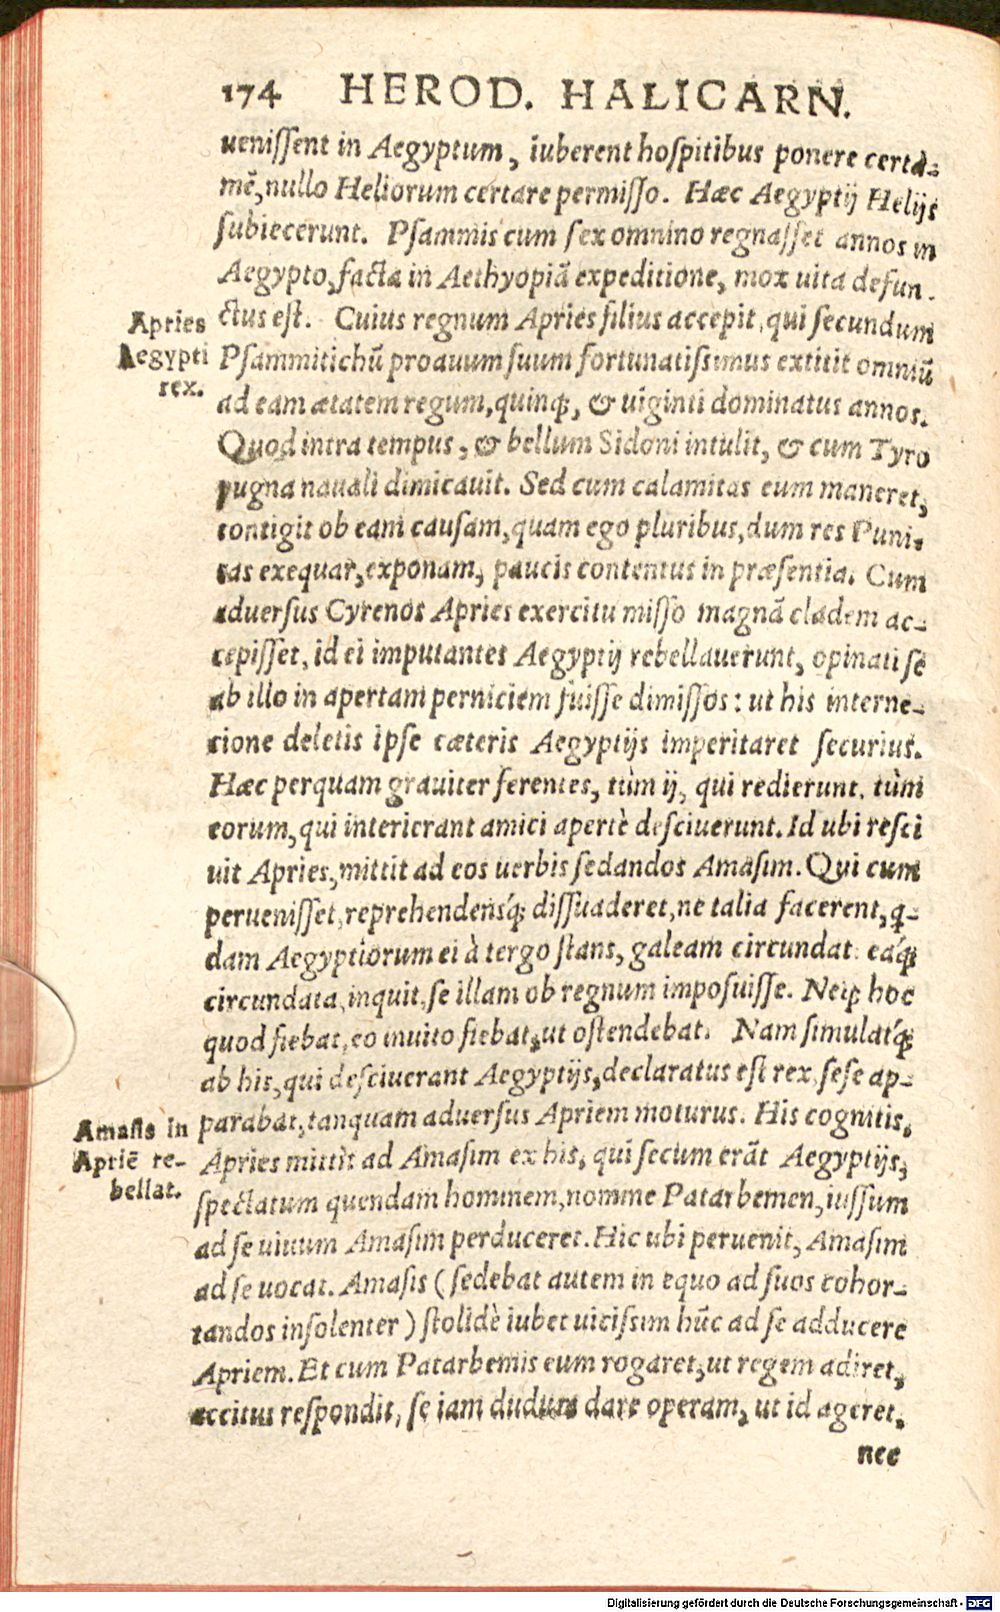 174 HEROD. HALICARN.
ueniſſent in Aegyptum, iuberent hoſpitibus ponere certa-
mē, nullo Heliorum certare permiſſo. Hæc Aegyptij Helijs
ſubiecerunt. Pſammis cum ſex omnino regnaſſet annos in
Aegypto, facta in Aethyopiā expeditione, mox uita defun-
ctus eſt. Cuius regnum Apries filius accepit, qui ſecundum
Apries
Aegypti
rex.
Pſammitichū proauum ſuum fortunatiſsimus extitit omniū
ad eam ætatem regum, quinq;, & uiginti dominatus annos.
Quod intra tempus, & bellum Sidoni intulit, & cum Tyro
pugna nauali dimicauit. Sed cum calamitas eum maneret,
contigit ob eam cauſam, quam ego pluribus, dum res Puni-
cas exequar, exponam, paucis contentus in præſentia. Cum
aduerſus Cyrenos Apries exercitu miſſo magnā cladem ac-
cepiſſet, id ei imputantes Aegyptij rebellauerunt, opinati ſe
ab illo in apertam perniciem fuiſſe dimiſſos: ut his interne-
cione deletis ipſe cæteris Aegyptijs imperitaret ſecurius.
Hæc perquam grauiter ferentes, tùm ij, qui redierunt, tùm
eorum, qui interierant amici apertè deſciuerunt. Id ubi reſci
uit Apries, mittit ad eos uerbis ſedandos Amaſim. Qui cum
perueniſſet, reprehendensq́; diſſuaderet, ne talia facerent, q-
dam Aegyptiorum ei à tergo ſtans, galeam circundat: eáq́;
circundata, inquit, ſe illam ob regnum impoſuiſſe. Neq; hoc
quod fiebat, eo inuito fiebat, ut oſtendebat. Nam ſimulatq́;
ab his, qui deſciuerant Aegyptijs, declaratus eſt rex, ſeſe ap-
parabat, tanquam aduerſus Apriem moturus. His cognitis,
Amaſis in
Apriē re-
bellat.
Apries mittit ad Amaſim ex his, qui ſecum erāt Aegyptijs,
ſpectatum quendam hominem, nomine Patarbemen, iuſſum
ad ſe uiuum Amaſim perduceret. Hic ubi peruenit, Amaſim
ad ſe uocat. Amaſis (ſedebat autem in equo ad ſuos cohor-
tandos inſolenter) ſtolidè iubet uiciſsim hūc ad ſe adducere
Apriem. Et cum Patarbemis eum rogaret, ut regem adiret,
accitus reſpondit, ſe iam dudum dare operam, ut id ageret,
nec
Digitalisierung gefördert durch die Deutsche Forschungsgemeinschaft - DFG